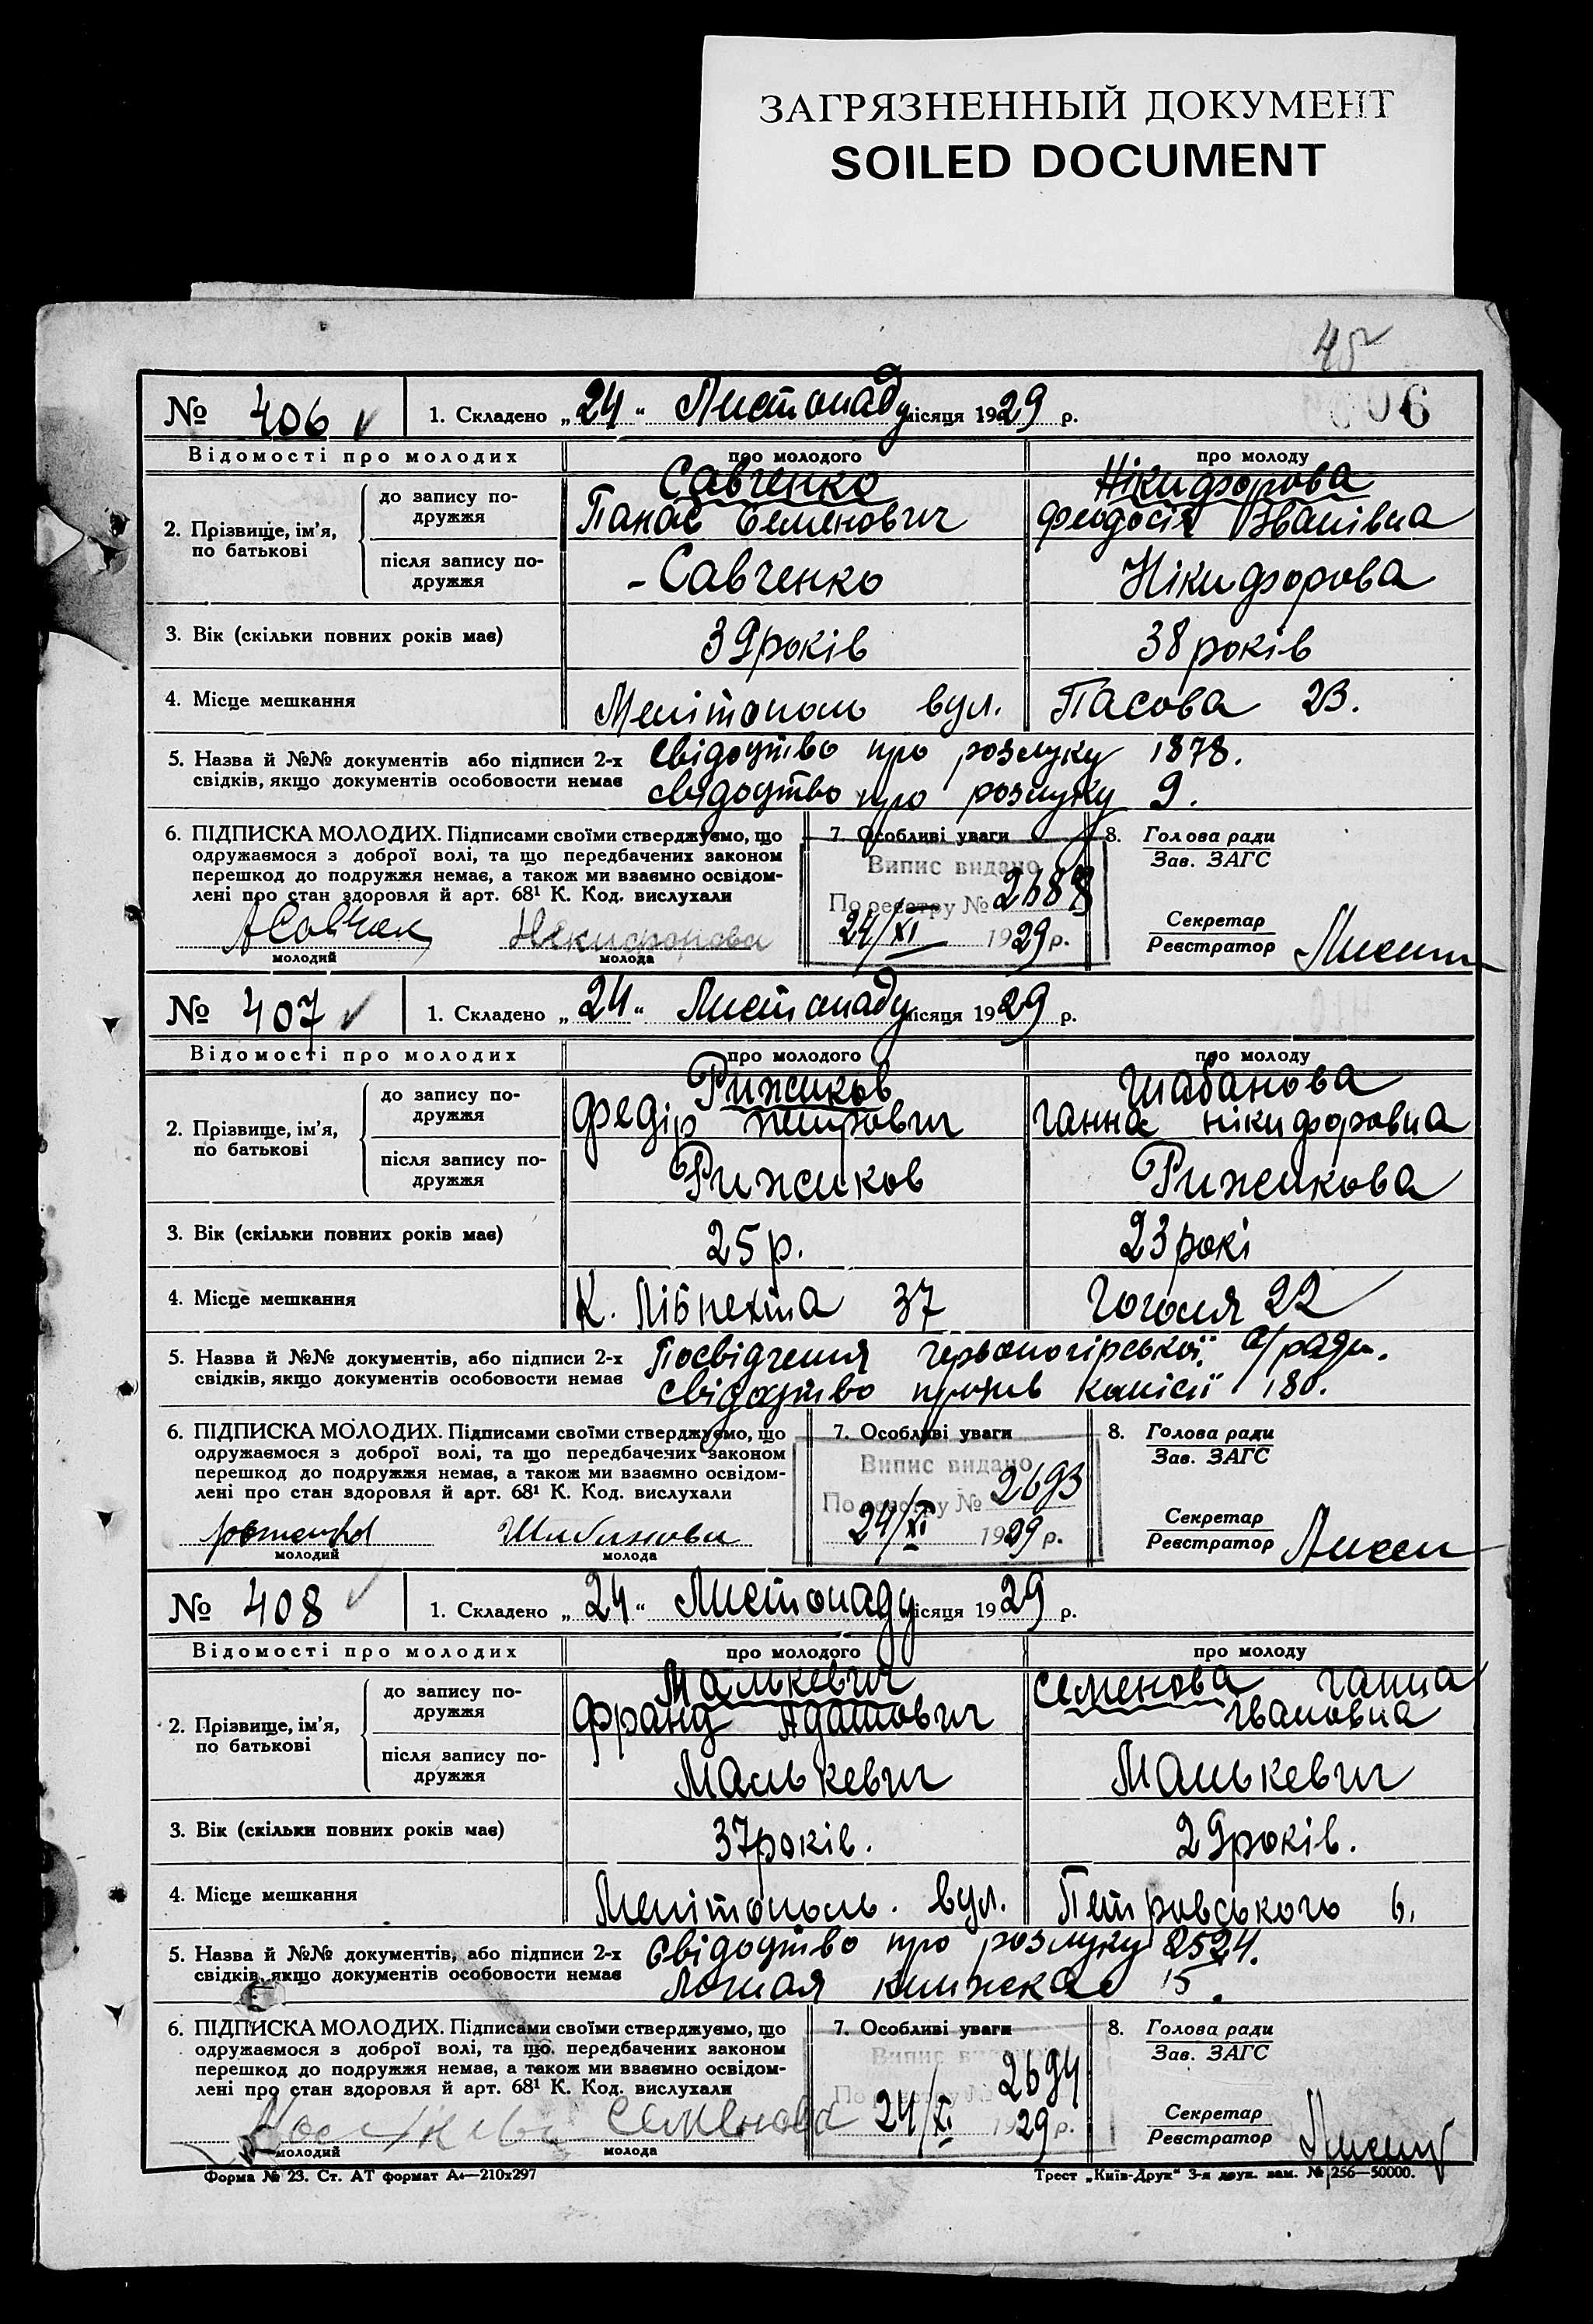 ЗАГРЯЗНЕННЫЙ ДОКУМЕНТ
SOILED DOCUMENT
45
№ 406 1. Складено „24“ Листопаду місяця 1929 р. 006
Відомості про молодих про молодого про молоду
2. Прізвище, ім’я, по батькові
до запису по-дружжя Савченко Нікифорова
Панас Семенович Феодосія Іванівна
після запису по-дружжя - Савченко Нікифорова
3. Вік (скільки повних років має) 39 років 38 років
4. Місце мешкання Мелітополь вул. Пасова 23.
5. Назва й №№ документів або підписи 2-х Свідоцтво про розлуку 1878.
свідків, якщо документів особовости немає свідоцтво про розлуку 9.
6. ПІДПИСКА МОЛОДИХ. Підписами своїми стверджуємо, що 7. Особливі уваги 8. Голова ради
одружаємося з доброї волі, та що передбачених законом Випис видано Зав. ЗАГС
перешкод до подружжя немає, а також ми взаємно освідом- По реєстру № 2688
лені про стан здоровля й арт. 68¹ К. Код. вислухали 24/XI 1929 р. Секретар
Нікифорова Реєстратор
молодий молода
№ 407 1. Складено „24“ Листопаду місяця 1929 р.
Відомості про молодих про молодого про молоду
2. Прізвище, ім’я, по батькові
до запису по-дружжя Рижиков Шабанова
Федір Петрович Ганна Нікифоровна
після запису по-дружжя Рижиков Рижикова
3. Вік (скільки повних років має) 25 р. 23 рокі
4. Місце мешкання К. Лібкнехта 37 Гоголя 22
5. Назва й №№ документів, або підписи 2-х Посвідчення Червоногірської с/ради.
свідків, якщо документів особовости немає свідоцтво комісії 180.
6. ПІДПИСКА МОЛОДИХ. Підписами своїми стверджуємо, що 7. Особливі уваги 8. Голова ради
одружаємося з доброї волі, та що передбачених законом Випис видано Зав. ЗАГС
перешкод до подружжя немає, а також ми взаємно освідом- По реєстру № 2693
лені про стан здоровля й арт. 68¹ К. Код. вислухали 24/XI 1929 р. Секретар
Шабанова Реєстратор
молодий молода
№ 408 1. Складено „24“ Листопаду місяця 1929 р.
Відомості про молодих про молодого про молоду
2. Прізвище, ім’я, по батькові
до запису по-дружжя Малькевич Семенова Ганна
Франц Адамович Івановна
після запису по-дружжя Малькевич Малькевич
3. Вік (скільки повних років має) 37 років. 29 років.
4. Місце мешкання Мелітополь. вул. Петровського 6.
5. Назва й №№ документів, або підписи 2-х Свідоцтво про розлуку 2524.
свідків, якщо документів особовости немає книжка 15.
6. ПІДПИСКА МОЛОДИХ. Підписами своїми стверджуємо, що 7. Особливі уваги 8. Голова ради
одружаємося з доброї волі, та що передбачених законом Випис видано Зав. ЗАГС
перешкод до подружжя немає, а також ми взаємно освідом- По реєстру № 2694
лені про стан здоровля й арт. 68¹ К. Код. вислухали 24/XI 1929 р. Секретар
Семенова Реєстратор
молодий молода
Форма № 23. Ст. АТ формат А₄—210x297 Трест „Київ-Друк“ 3-я друк. зам. № 256—50000.